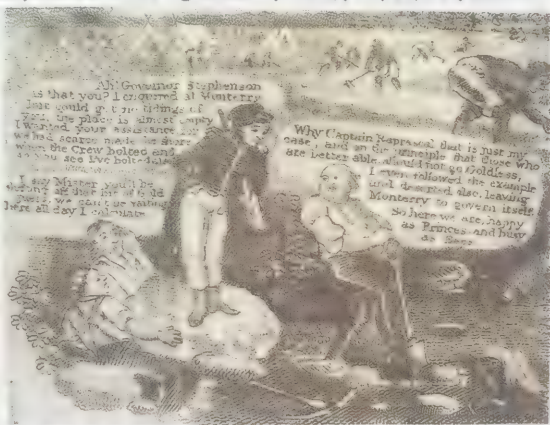 Ah! Governor Stephenson
is that you? I enquired at Monterry
but could get no tidings of
you, the place is almost empty
I wanted your assistance, for
we had scarce made the shore
when the Crew bolted and
so you see I've bolted also
I say Mister you'll be
all the Gold
we can't be waiting
here all day I calculate
Why Captain that is just my
case, and on the principle that those who
are better able should not go Goldless,
I even followed the example
and deserted also, leaving
Monterry to govern itself
So here we are, happy
as Princes and busy
as Bees